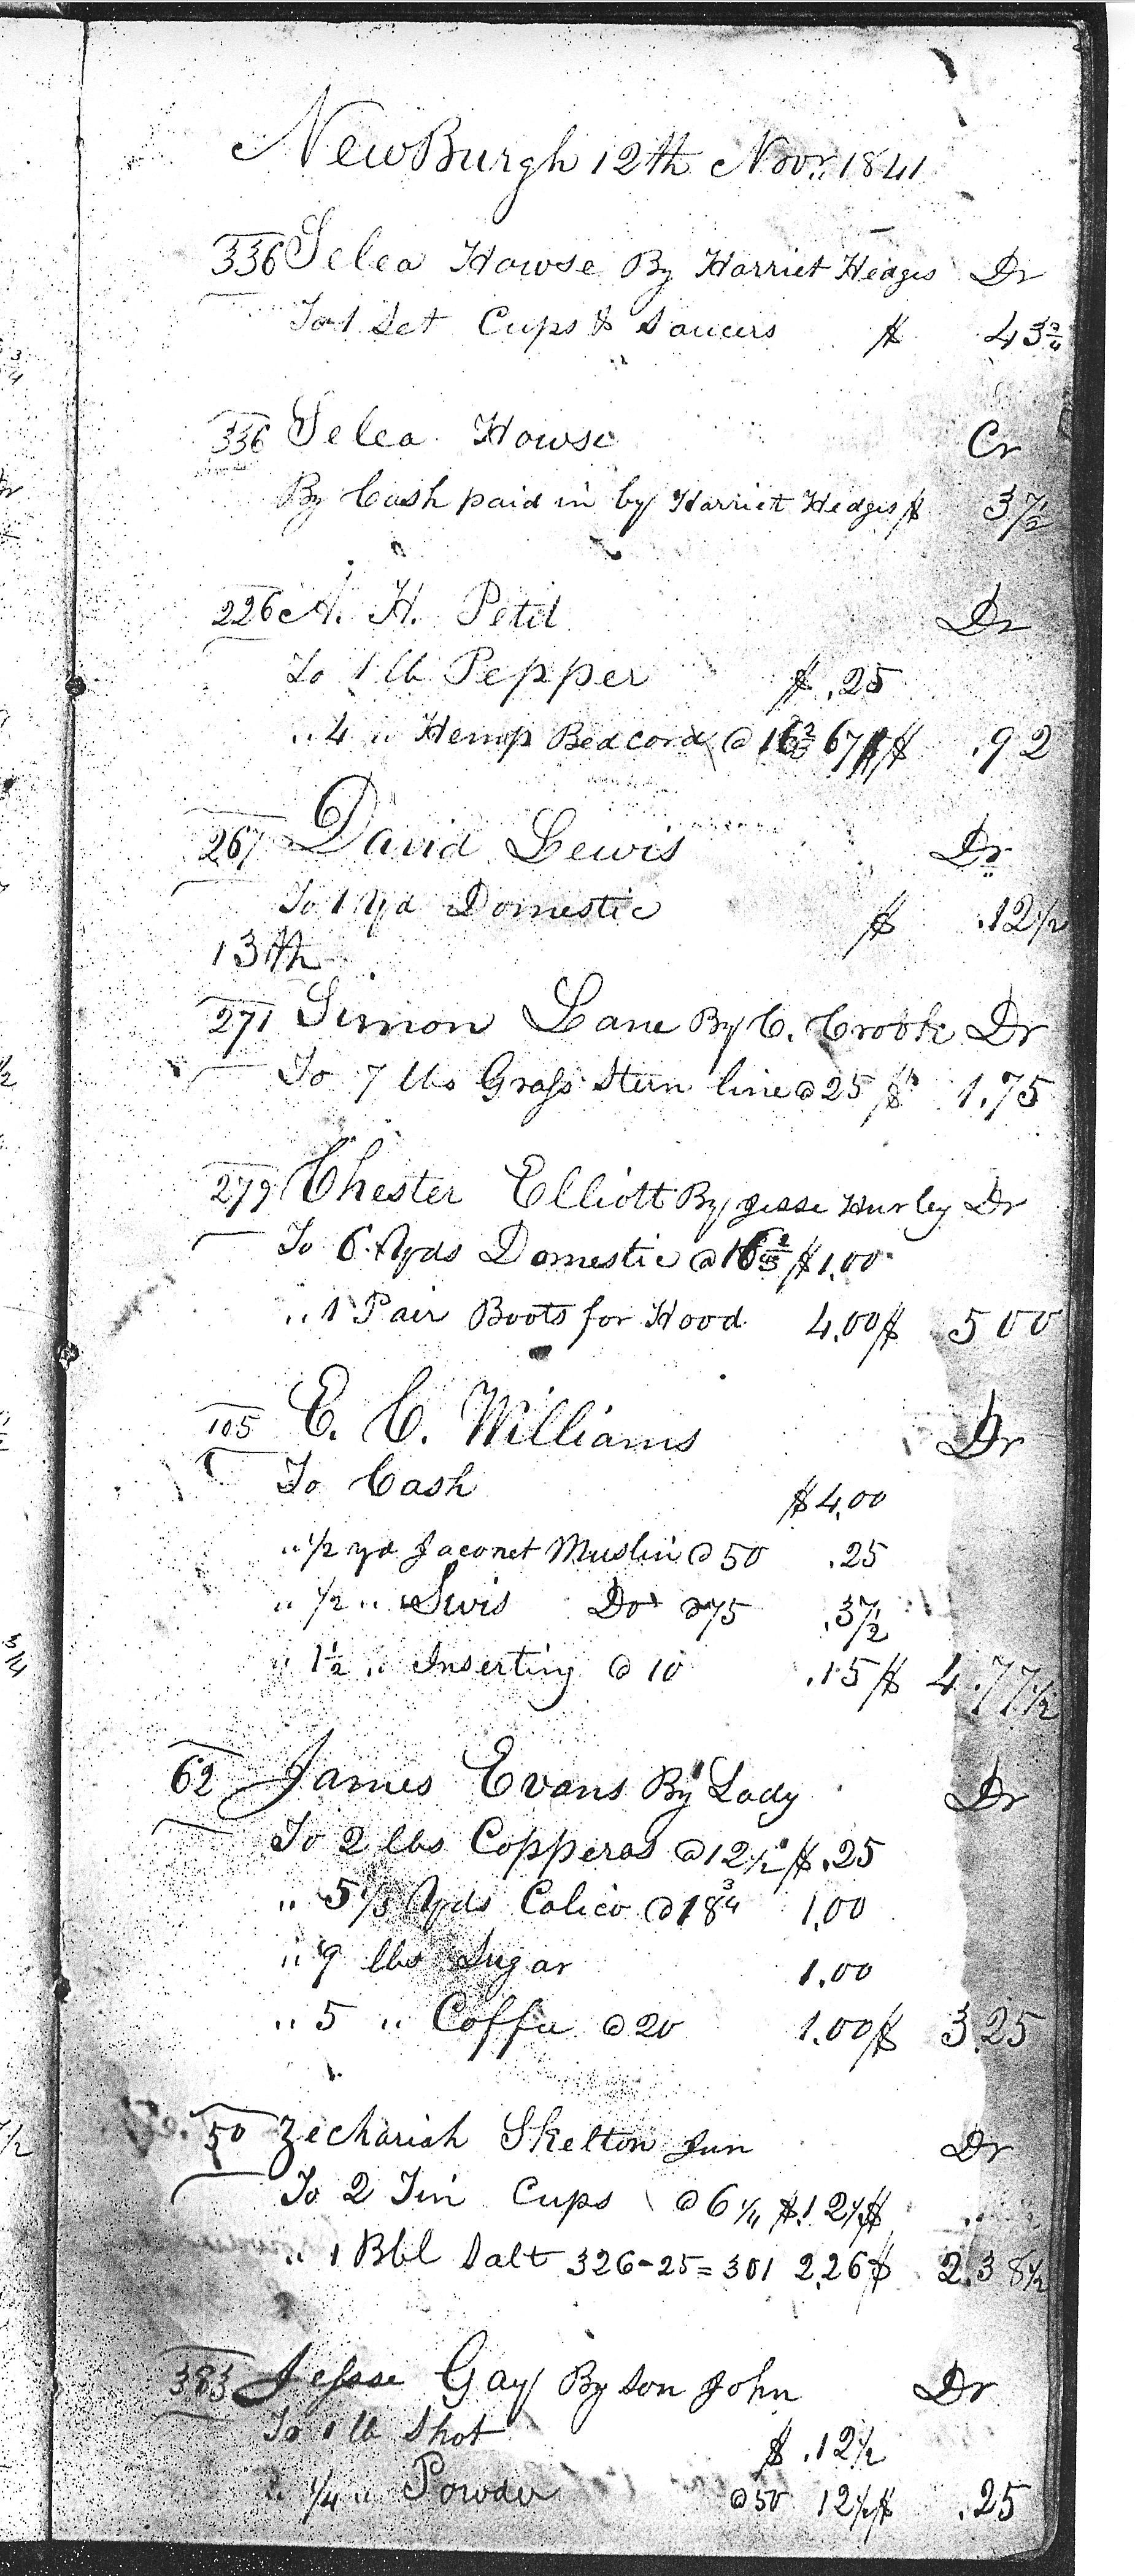 NewBurgh 12th Novr. 1841
336 Selea Howse By Harriet Hedges Dr
To 1 Set Cups & Saucers $ 43¾
336 Selea Howse Cr
By Cash paid in by Harriet Hedges $ 37½
226 A. H. Petit Dr
To 1 lb Pepper $ .25
" 4 " Hemp Bedcord @ 16⅔ 67 $ .92
267 David Lewis Dr
To 1 Yd Domestic $ .12½
13th
271 Simon Lane By C. Crook Dr
To 7 lbs Grass Stern line @ 25 $ 1.75
279 Chester Elliott By Jesse Hurley Dr
To 6 Yds Domestic @ 16⅔ $1.00
" 1 Pair Boots for Hood 4.00 $ 5 00
105 E. C. Williams Dr
To Cash $4.00
" ½ yd Jaconet Muslin @ 50 .25
" ½ " Swis Do @ 75 .37½
" 1½ " Inserting @ 10 .15 $ 4.77½
62 James Evans By Lady Dr
To 2 lbs Copperas @ 12½ $ .25
" 5⅓ Yds Calico @ 18¾ 1.00
" 9 lbs Sugar 1.00
" 5 " Coffee @ 20 1.00 $ 3.25
50 Zechariah Skelton Jun Dr
To 2 Tin Cups @ 6¼ $.12½ $
" 1 Bbl Salt 326-25=301 2.26 $ 2.38½
383 Jesse Gay By Son John Dr
To 1 lb Shot $ .12½
" ¼ " Powder @50 12½ $ .25